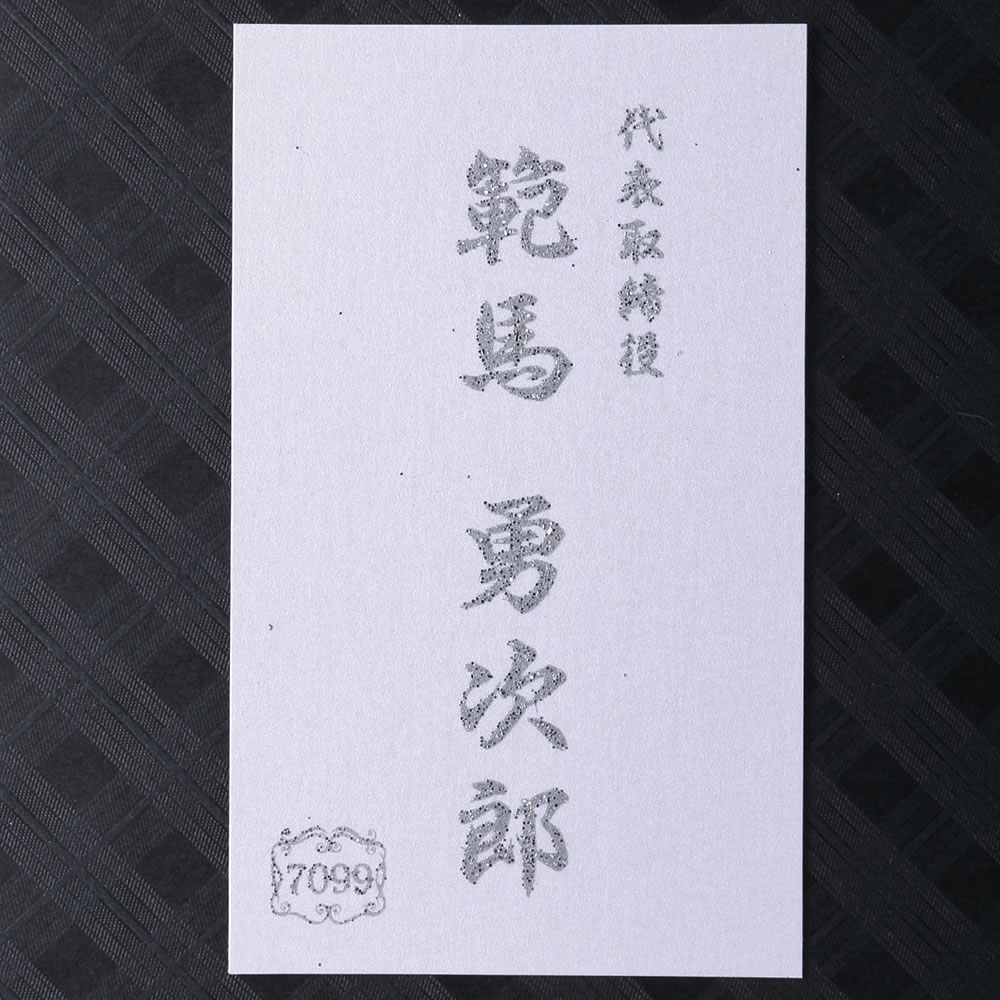 代表取締役
範馬 勇次郎
7099